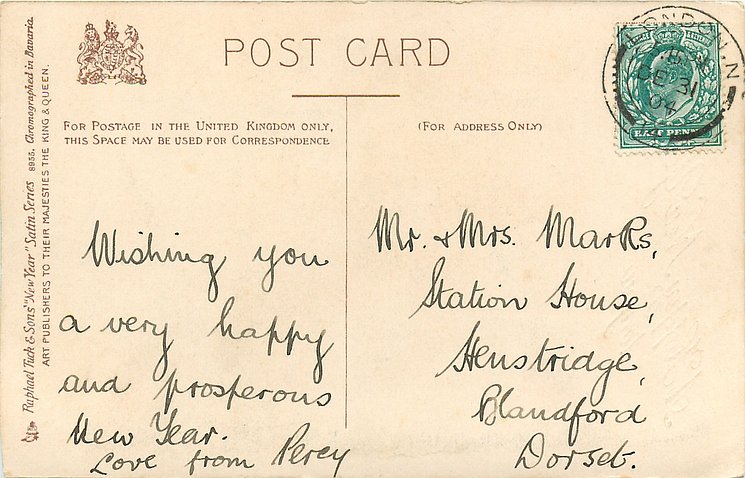 POST CARD
FOR POSTAGE IN THE UNITED KINGDOM ONLY,
THIS SPACE MAY BE USED FOR CORRESPONDENCE
(FOR ADDRESS ONLY)
Raphael Tuck & Sons' "New Year" Satin Series 8955. Chromographed in Bavaria.
ART PUBLISHERS TO THEIR MAJESTIES THE KING & QUEEN.
LONDON. N
DE 31
04
HALF PENNY
Wishing you
a very happy
and prosperous
New Year.
Love from Percy
Mr. & Mrs. Marks,
Station House,
Henstridge,
Blandford
Dorset.